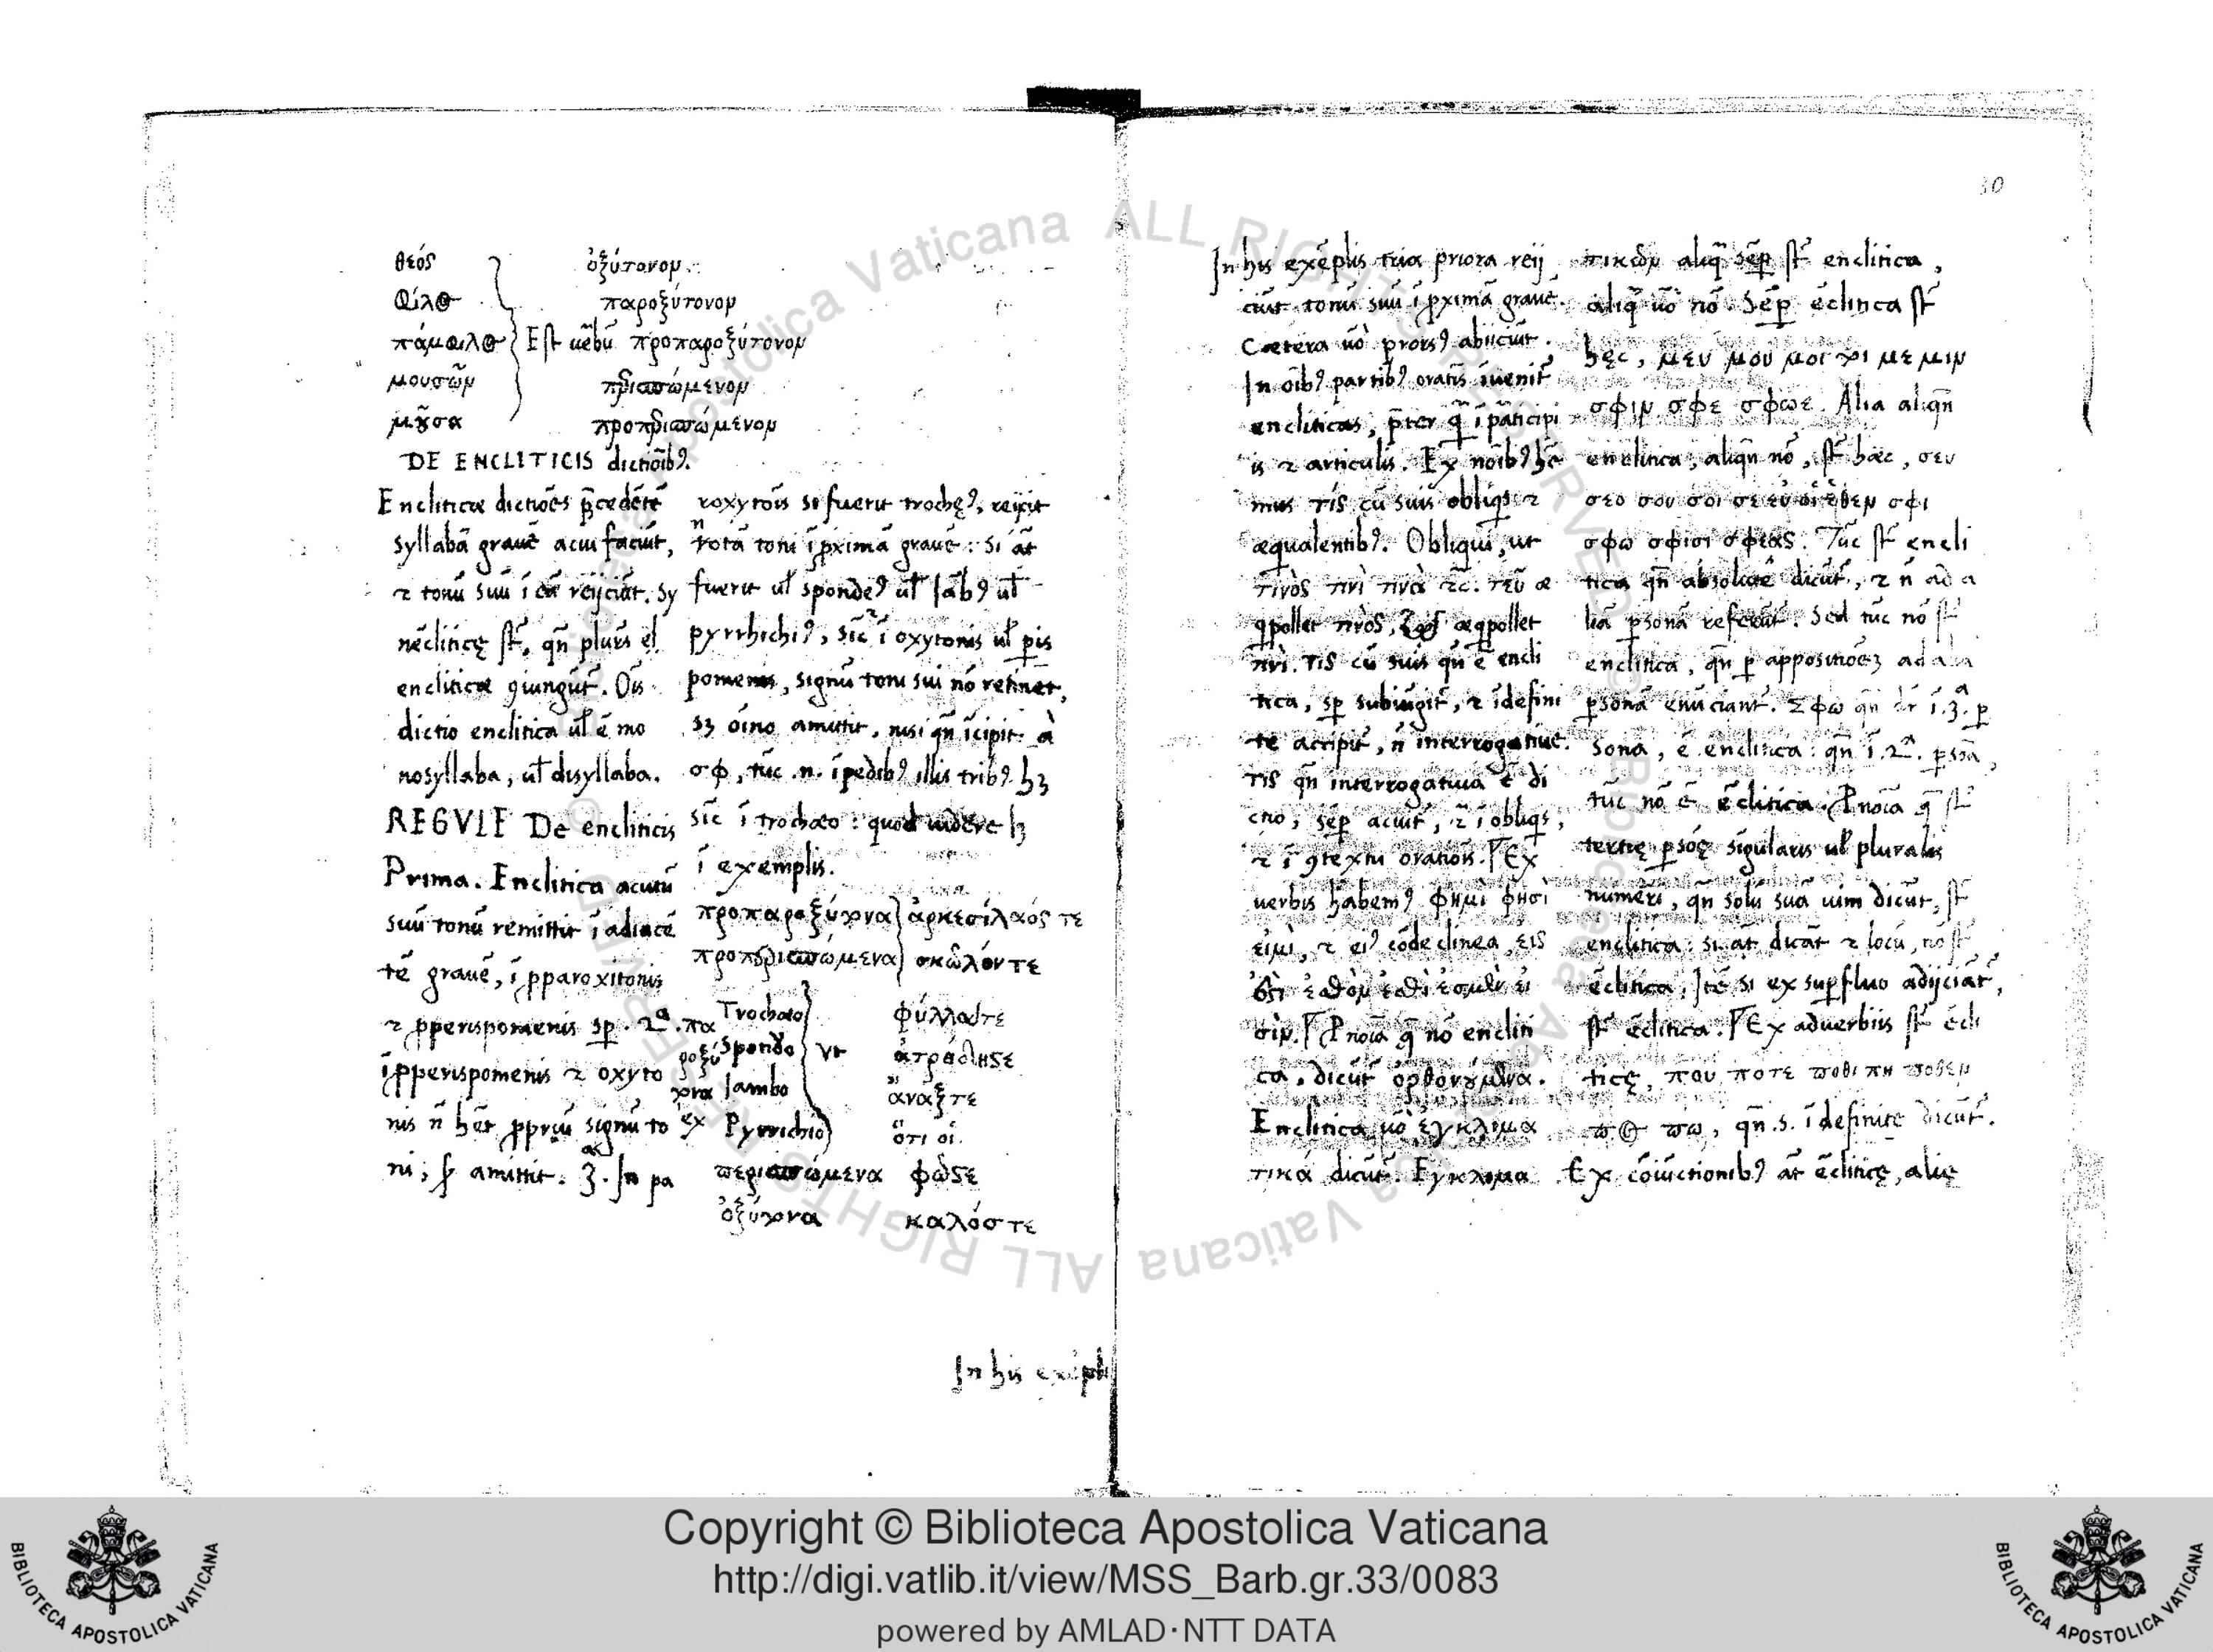 30
θεός ὀξύτονον
φίλος παροξύτονον
πάμφιλος Est uerbũ προπαροξύτονον
μουσῶν περισπώμενον
μοῦσα προπερισπώμενον
DE ENCLITICIS dictiõibꝰ.
Encliticæ dictiões p̃cedẽtẽ
syllabã grauẽ acui faciũt,
⁊ tonũ suũ ĩ eã reijciũt. Sy
nẽcliticę st̃, qñ plures
encliticæ ꝯiungũt̃. Oĩs
dictio enclitica ul̃ ẽ mo
nosyllaba, ul̃ disyllaba.
REGVLE De encliticis
Prima. Enclitica acutũ
suũ tonũ remittit ĩ adiacẽ
tẽ grauẽ, ĩ pparoxitonis
⁊ pperispomenis sp̃. 2ª. πα
ĩ pperispomenis ⁊ oxyto
nis ñ hẽt ppriũ signũ to
ni, amittit. 3ª. In pa
roxytoĩs si fuerit trochęꝰ, reijcit
notã toni ĩ pximã grauẽ: si aũt
fuerit ul̃ spondeꝰ ul̃ Iãbꝰ ul̃
pyrrhichiꝰ, sic̃ ĩ oxytonis ul̃ pis
pomenis, signũ toni sui nõ retinet,
sꝫ oĩno amittit, nisi qñ ĩcipit à
σφ, tũc .n. ĩ pedibꝰ illis tribꝰ hꝫ
sic̃ ĩ trochæo: quod uidere lꝫ
ĩ exemplis.
προπαροξύτονα ἀρκεσίλαός τε
προπερισπώμενα σκῶλόν τε
παροξύτονα ex
Trochæo φύλλα τε
Spondeo Vt
Iambo ἄναξ τε
Pyrrichio ὅτι οἱ
περισπώμενα φῶς τε
ὀξύτονα καλός τε
In his exẽpli
In his exẽplis tria priora reij
ciũt tonũ suũ ĩ pximã grauẽ.
Cætera uõ prorsꝰ abijciũt.
In oĩbꝰ partibꝰ oratiõis ĩuenit̃
encliticas, p̃ter q̃ ĩ participi
is ⁊ articulis. Ex noĩbꝰ hẽ
mus τίς cũ suis obliqs ⁊
æqualentibꝰ. Obliqui, ut
τινὸς τινὶ τινὰ ⁊c. τεῦ æ
qpollet τινὸς, æqpollet
τινὶ. τις cũ suis qñ ẽ encli
tica, sp̃ subiũgit̃, ⁊ ĩdefini
te accipit̃, ñ interrogatiue.
τις qñ interrogatiua ẽ di
ctio, sẽp acuit̃, ⁊ ĩ obliqs,
⁊ ĩ ꝯtextu orationis. Ex
uerbis habemꝰ φημὶ φησὶ
εἰμὶ, ⁊ eiꝰ cõdeclinea, εἰς
ἐστὶ ἐστὸν ἐστὶ ἐσμὲν εἰ
σὶν. Pnoĩa q̃ nõ encliti
ca, dicũt̃ ὀρθοτονούμενα.
Enclitica uõ ἐγκλιμα
τικά dicũt̃. Εγκλιμα
τικῶν aliq̃ sẽp st̃ enclitica,
aliq̃ uõ nõ. Sẽp ẽclitica st̃
hęc, μευ μου μοι με μιν
σφιν σφε σφωε. Alia aliqñ
enclitica, aliqñ nõ, st̃ hæc, σευ
σεο σου σοι σε εὑ οἱ ἑθεν σφι
σφω σφισι σφεας. Tũc st̃ encli
tica qñ absolute dicũt̃, ⁊ ñ ad a
liã psonã referũt̃. Sed tũc nõ st̃
enclitica, qñ p appositiõeꝫ ad alia
psonã enũciant̃. Σφω qñ dr̃ ĩ .3ª. p
sona, ẽ enclitica: qñ ĩ .2ª. psõa,
tũc nõ ẽ ẽclitica. Pnoĩa q̃ st̃
tertię psõę sĩgularis ul̃ pluralis
numeri, qñ solũ suã uim dicũt, st̃
enclitica: si aũt dicãt ⁊ locũ, nõ st̃
ẽclitica. Itẽ si ex supfluo adijciãt̃,
st̃ ẽclitica. Ex aduerbiis st̃ ẽcli
ticę, που ποτε ποθι πη ποθεν
πως πω, qñ .s. ĩdefinite dicũt̃.
Ex cõiũctionibꝰ aũt ẽcliticę, alię
Copyright © Biblioteca Apostolica Vaticana
http://digi.vatlib.it/view/MSS_Barb.gr.33/0083
powered by AMLAD·NTT DATA
BIBLIOTECA APOSTOLICA VATICANA
BIBLIOTECA APOSTOLICA VATICANA